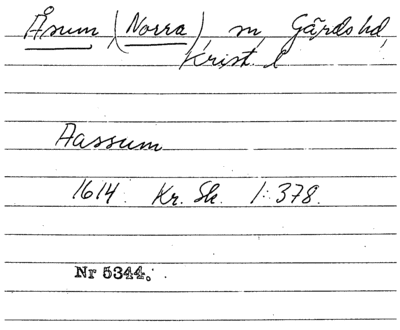 Åsum, (Norra), sn, Gärds hd,
Krist. l
Aassum
1614. Kr. Sk. 1:378.
Nr 5344.